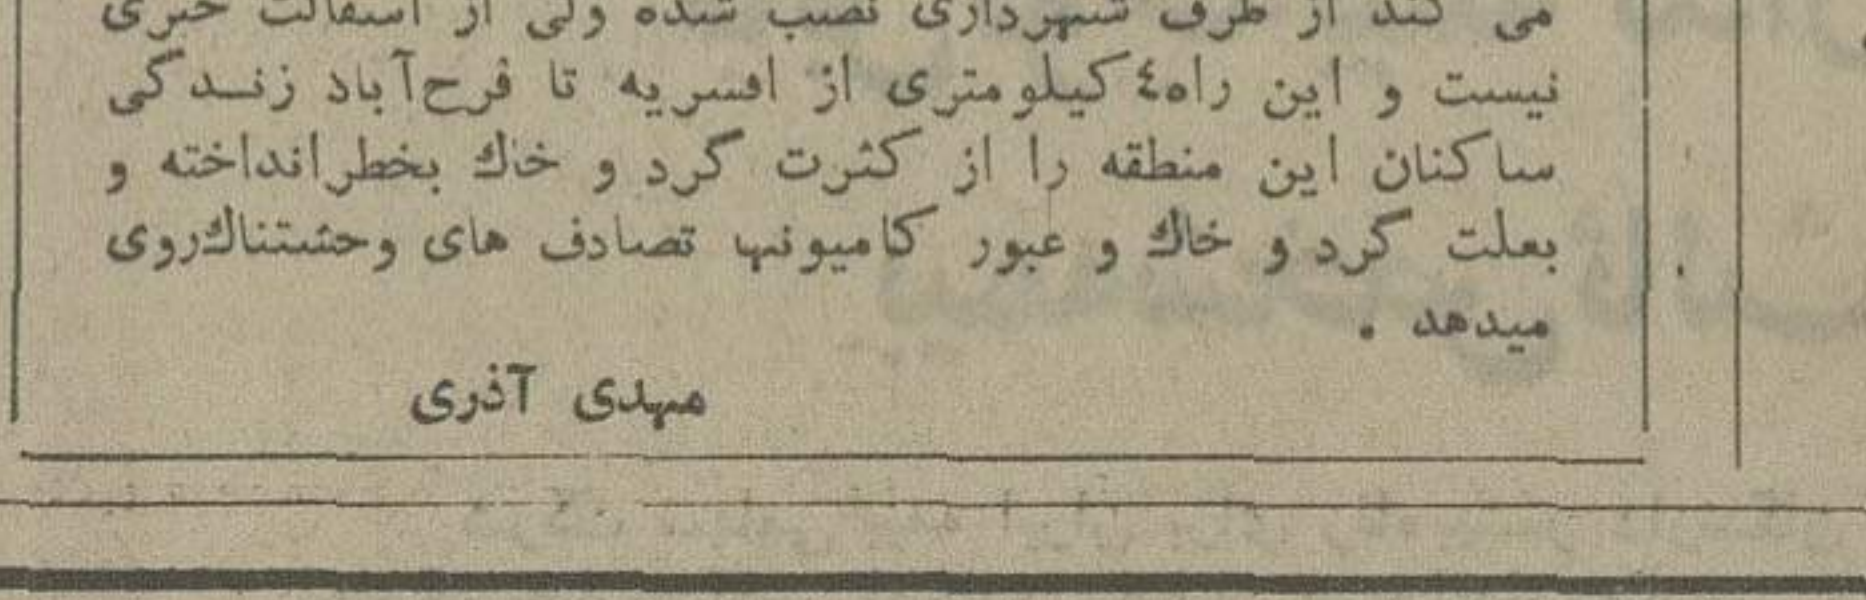 می کند از طرف شهرداری نصب شده ولی از اسفالت خبری
نیست و این راه ٤ کیلومتری از افسریه تا فرح‌آباد زنــدگی
ساکنان این منطقه را از کثرت گرد و خاك بخطر انداخته و
بعلت گرد و خاك و عبور کامیونها تصادف های وحشتناك روی
میدهد .
مهدی آذری